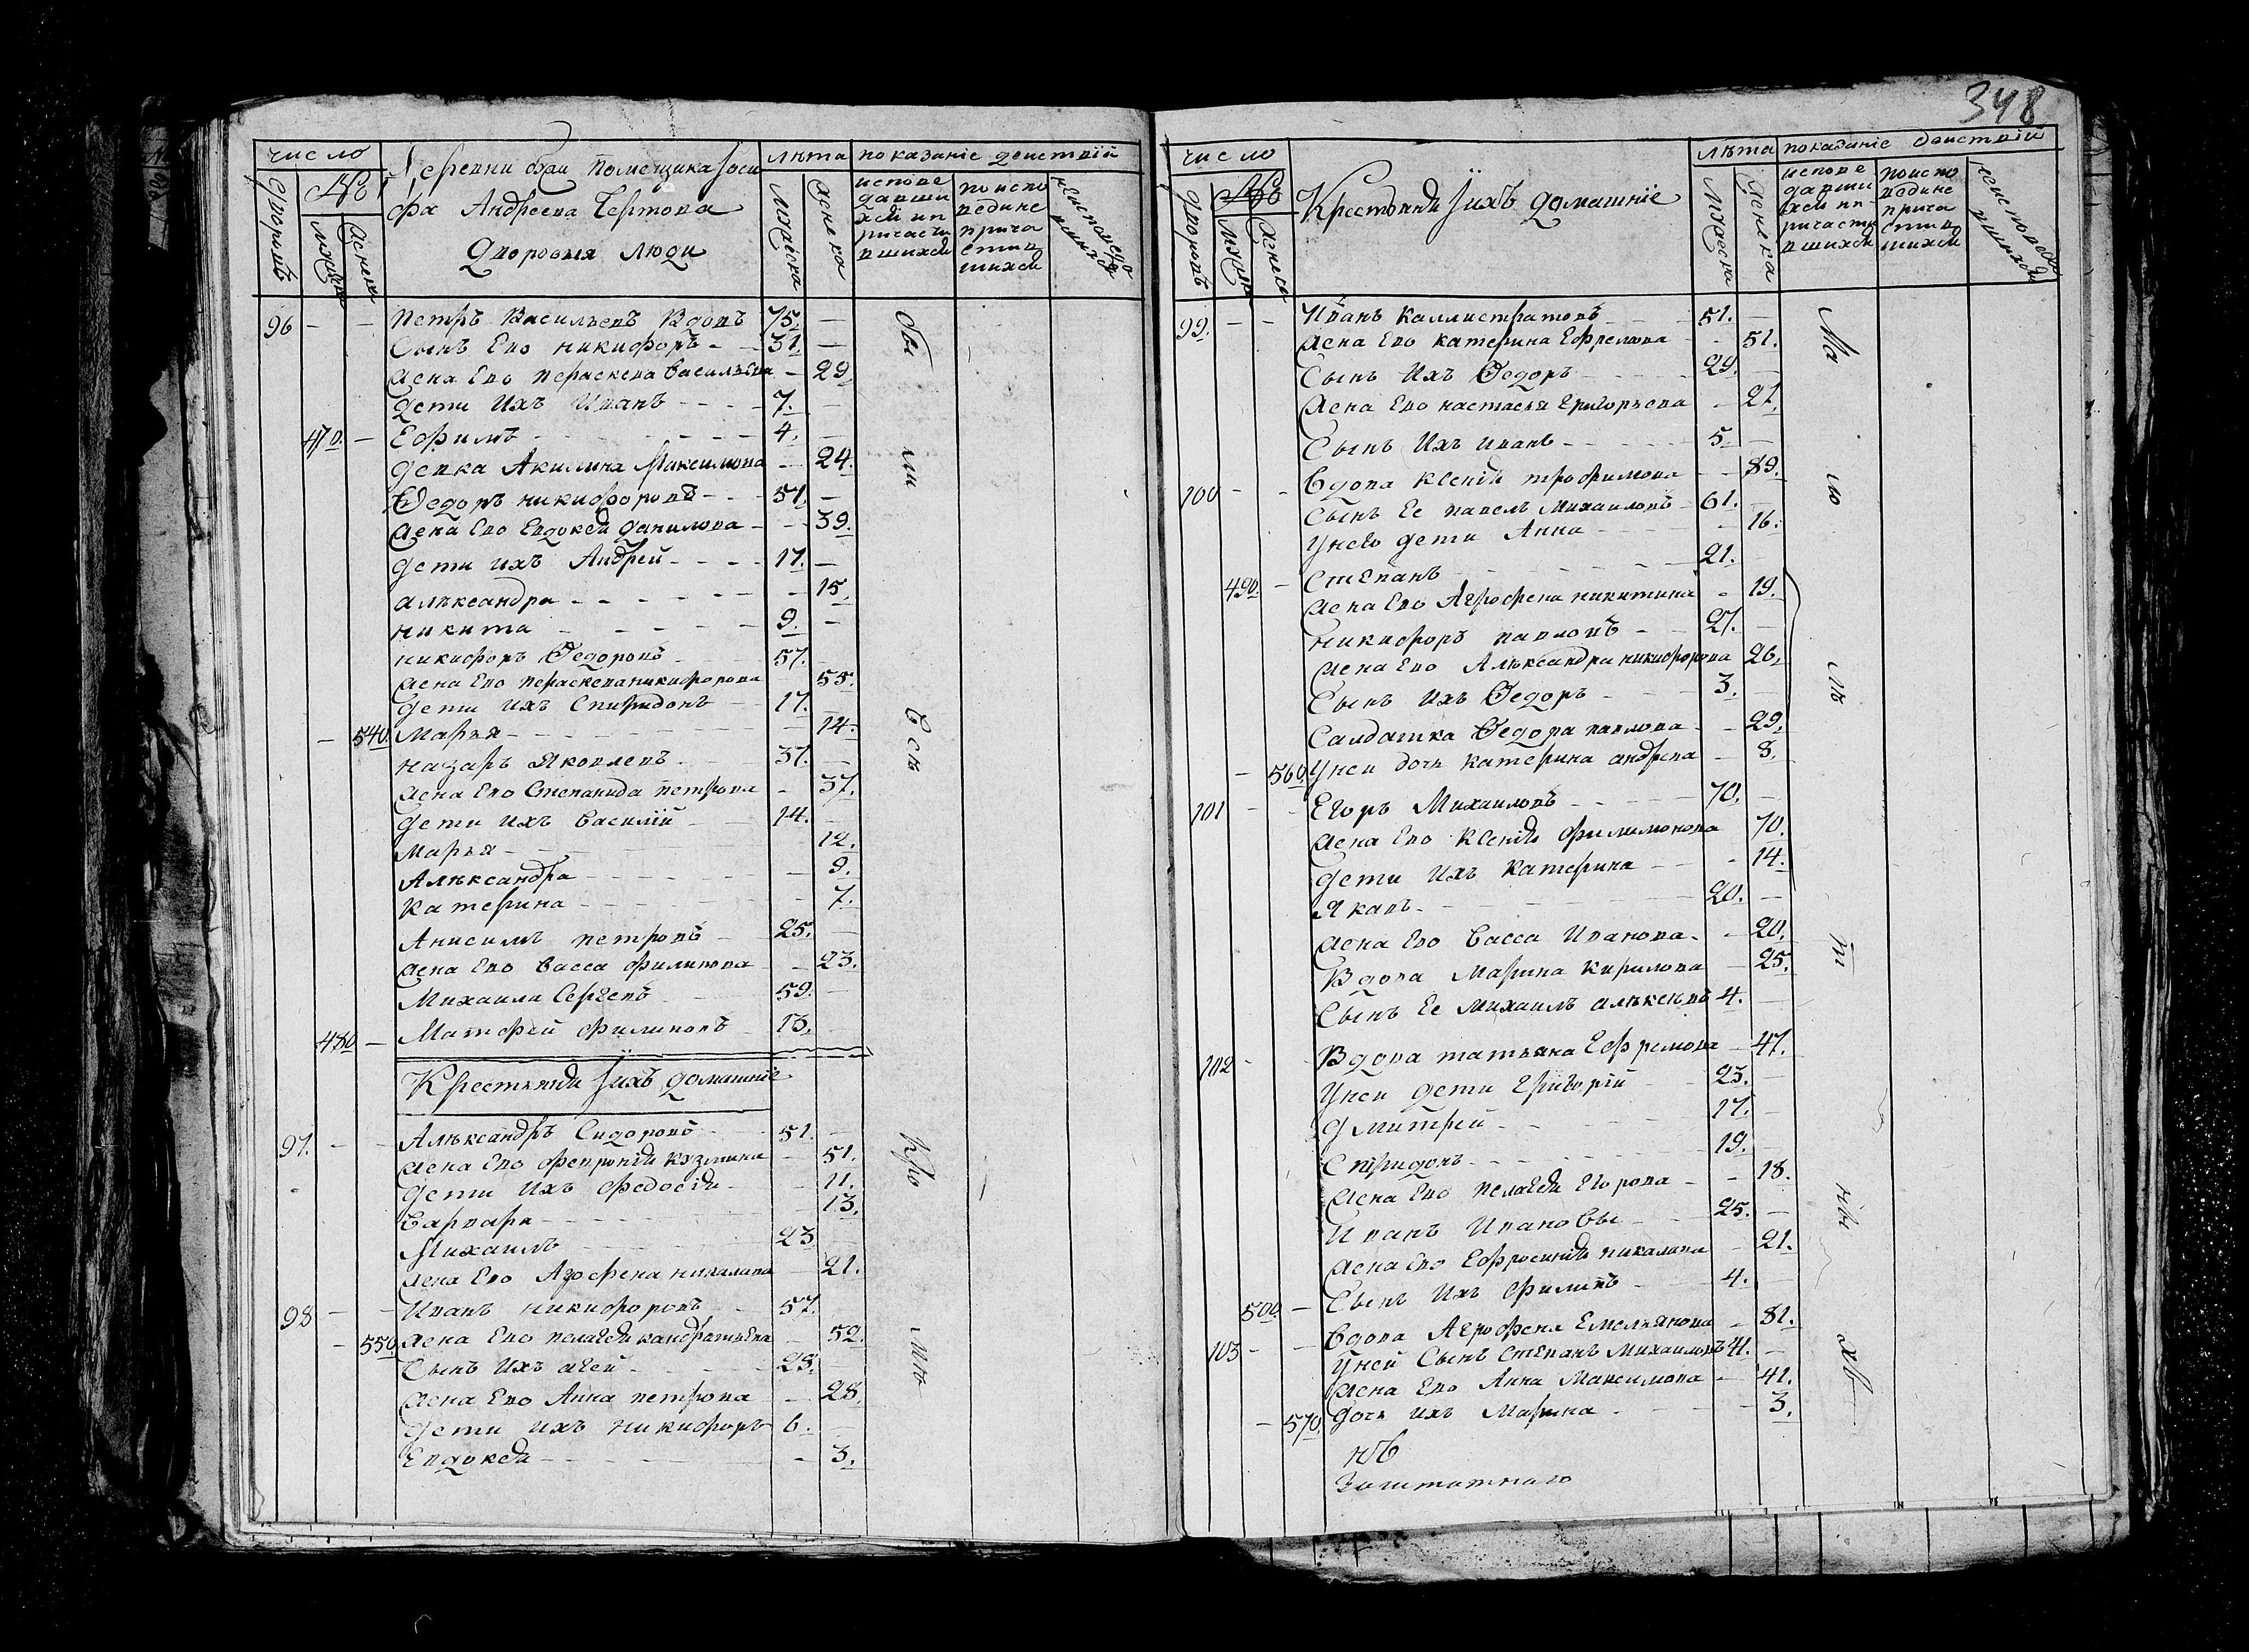 348
число
дворовъ
№
мужеска
женска
Деревни помещика Іоси
фа Андреева Чертова
Дворовыя люди
лѣта
мужеска
женска
показаніе деиствіи
испове
давши
хся и п
ричасти
вшихся
по испо
ведине
прича
стив
шихся
96 — — Петръ Васильевъ Вдовъ 75. —
Сынъ Ево никифоръ 31. —
жена Ево пераскева васильева — 29.
дети Ихъ Иванъ 7. —
470. — Ефимъ 4. —
девка Акилина Максимова — 24.
Ѳедоръ никифоровъ 57. —
жена Ево Евдокея данилова — 39.
дети ихъ Андрей 17. —
алѣксандра — 15.
никита 9. —
никифоръ Ѳедоровъ 57. —
жена Ево пераскева никифорова 55.
дети ихъ Спиридонъ 17. —
— 540. Марья — 14.
назаръ Яковлевъ 37. —
жена Ево Степанида петрова — 37.
дети ихъ василій 14. —
Марья — 12.
Алѣксандра — 9.
катерина — 7.
Анисимъ петровъ 25. —
жена Ево васса филипова — 23.
Михаила Сергѣевъ 59. —
480 — Матфей филиповъ 13. —
Крестьяня Іихъ домашніе
97. — — Алѣксандръ Сидоровъ 51. —
жена Ево февронія кузмина — 51.
дети Ихъ федосія — 11.
варвара — 13.
Михаилъ 23 —
жена Ево Агрофена никалаева — 21.
98 — — Иванъ никифоровъ 57.
— 550. жена Ево пелагея кандратьева — 52.
Сынъ Ихъ агей 25. —
жена Ево Анна петрова — 28.
дети ихъ никифоръ 6. —
Евдокея — 3.
Обе
ли
Всѣ
Кро
мѣ
число
дворовъ
№
мужеска
женска
Крестьяня Іихъ домашніе
лѣта
мужеска
женска
показаніе деиствіи
испове
давши
хся и п
ричасти
вшихся
по испо
ведине
прича
стив
шихся
99. — — Иванъ каллистратовъ 51. —
жена Ево катерина Ефремова — 51.
Сынъ Ихъ Ѳедоръ 29. —
жена Ево настасья григорьева — 27.
Сынъ Ихъ иванъ 5. —
100 — — Вдова ксенія трофимова — 89.
Сынъ Ее павелъ Михаиловъ 61. —
Унего дети Анна — 16.
490. — Степанъ 21. —
жена Ево Агрофена никитина — 19.
никифоръ павловъ 27. —
жена Ево Алѣксандра никифорова 26.
Сынъ Ихъ Ѳедоръ 3. —
Салдатка Ѳедора павлова — 29.
— 560. Унеи дочь катерина андрева — 8.
101 — — Егоръ Михаиловъ 70. —
жена Ево ксенія филимонова 70.
дети Ихъ катерина — 14.
Яковъ 20. —
жена Ево васса Иванова — 20.
Вдова Марина кирилова — 25.
Сынъ Ее Михаилъ алѣксѣевъ 4. —
102 — Вдова татьяна Ефремова — 47.
Унеи дети григорій 23. —
дмитреи 17. —
Спиридонъ 19. —
жена Ево пелагея егорова — 18.
Иванъ Ивановъ 25. —
жена Ево Ефросинія никалаева — 21.
500 — Сынъ Ихъ филипъ 4. —
103 — — Вдова Агрофена Емельянова — 81.
Унеи Сынъ Степанъ Михаиловъ 41. —
жена Ево Анна Максимова — 41.
— 570. дочь ихъ Марина — 3.
Заштатнаго
Ма
ло
лѣ
хъ